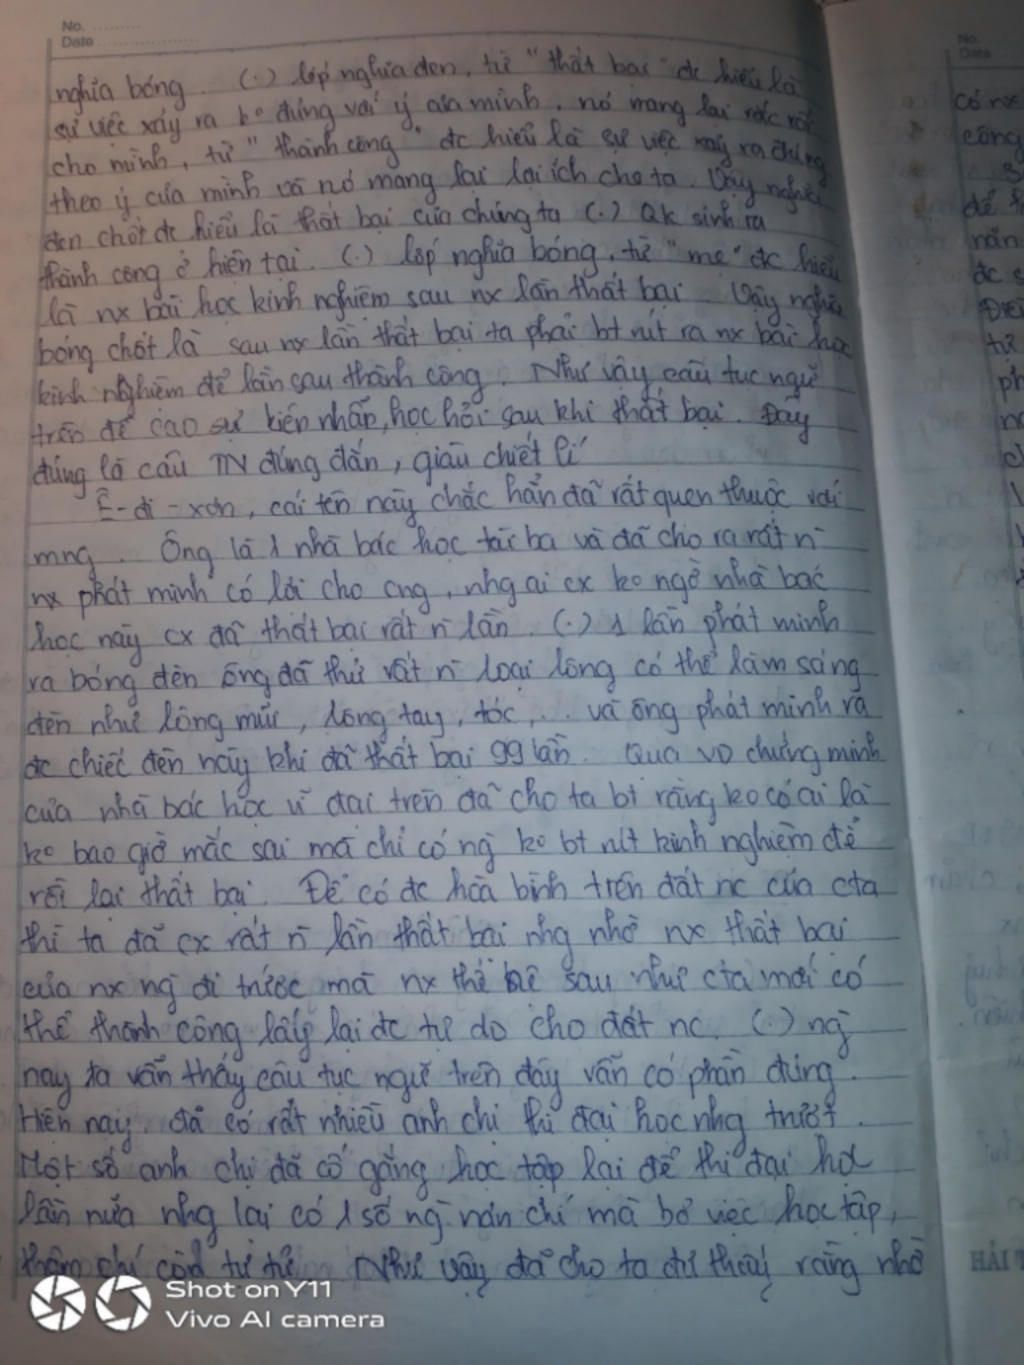 No.
Date
nghĩa bóng. (.) lớp nghĩa đen, từ "thất bại" đc hiểu là
sự việc xảy ra ko đúng với ý của mình, nó mang lại rắc rối
cho mình, từ "thành công" đc hiểu là sự việc xảy ra đúng
theo ý của mình và nó mang lại lợi ích cho ta. Vậy nghĩa
đen chốt đc hiểu là thất bại của chúng ta (.) qk sinh ra
thành công ở hiện tại. (.) lớp nghĩa bóng, từ "mẹ" đc hiểu
là nx bài học kinh nghiệm sau nx lần thất bại. Vậy nghĩa
bóng chốt là sau nx lần thất bại ta phải bt rút ra nx bài học
kinh nghiệm để lần sau thành công. Như vậy, câu tục ngữ
trên đề cao sự kiên nhẫn, học hỏi sau khi thất bại. Đây
đúng là câu TN đúng đắn, giàu chiết lí
Ê-đi-xơn, cái tên này chắc hẳn đã rất quen thuộc với
mng. Ông là 1 nhà bác học tài ba và đã cho ra rất n̄
nx phát minh có lời cho cng, nhg ai cx ko ngờ nhà bác
học này cx đã thất bại rất n̄ lần. (.) 1 lần phát minh
ra bóng đèn ông đã thử rất n̄ loại lông có thể làm sáng
đèn như lông mũi, lông tay, tóc,... và ông phát minh ra
đc chiếc đèn này khi đã thất bại 99 lần. Qua VD chứng minh
của nhà bác học vĩ đại trên đã cho ta bt rằng ko có ai là
ko bao giờ mắc sai mà chỉ có ng̀ ko bt rút kinh nghiệm để
rồi lại thất bại. Để có đc hòa bình trên đất nc của cta
thì ta đã cx rất n̄ lần thất bại nhg nhờ nx thất bại
của nx ng̀ đi trước mà nx thế hệ sau như cta mới có
thể thành công lấy lại đc tự do cho đất nc. (.) ng̀
nay ta vẫn thấy câu tục ngữ trên đây vẫn có phần đúng.
Hiện nay, đã có rất nhiều anh chị thi đại học nhg trượt.
Một số anh chị đã cố gắng học tập lại để thi đại học
lần nữa nhg lại có 1 số ng̀ nản chí mà bỏ việc học tập,
thậm chí còn tự tử. Như vậy đã cho ta thấy rằng nhờ
No.
Date
có nx
công
để
nản
đc s
từ
ph
HẢI
Shot on Y11
Vivo AI camera